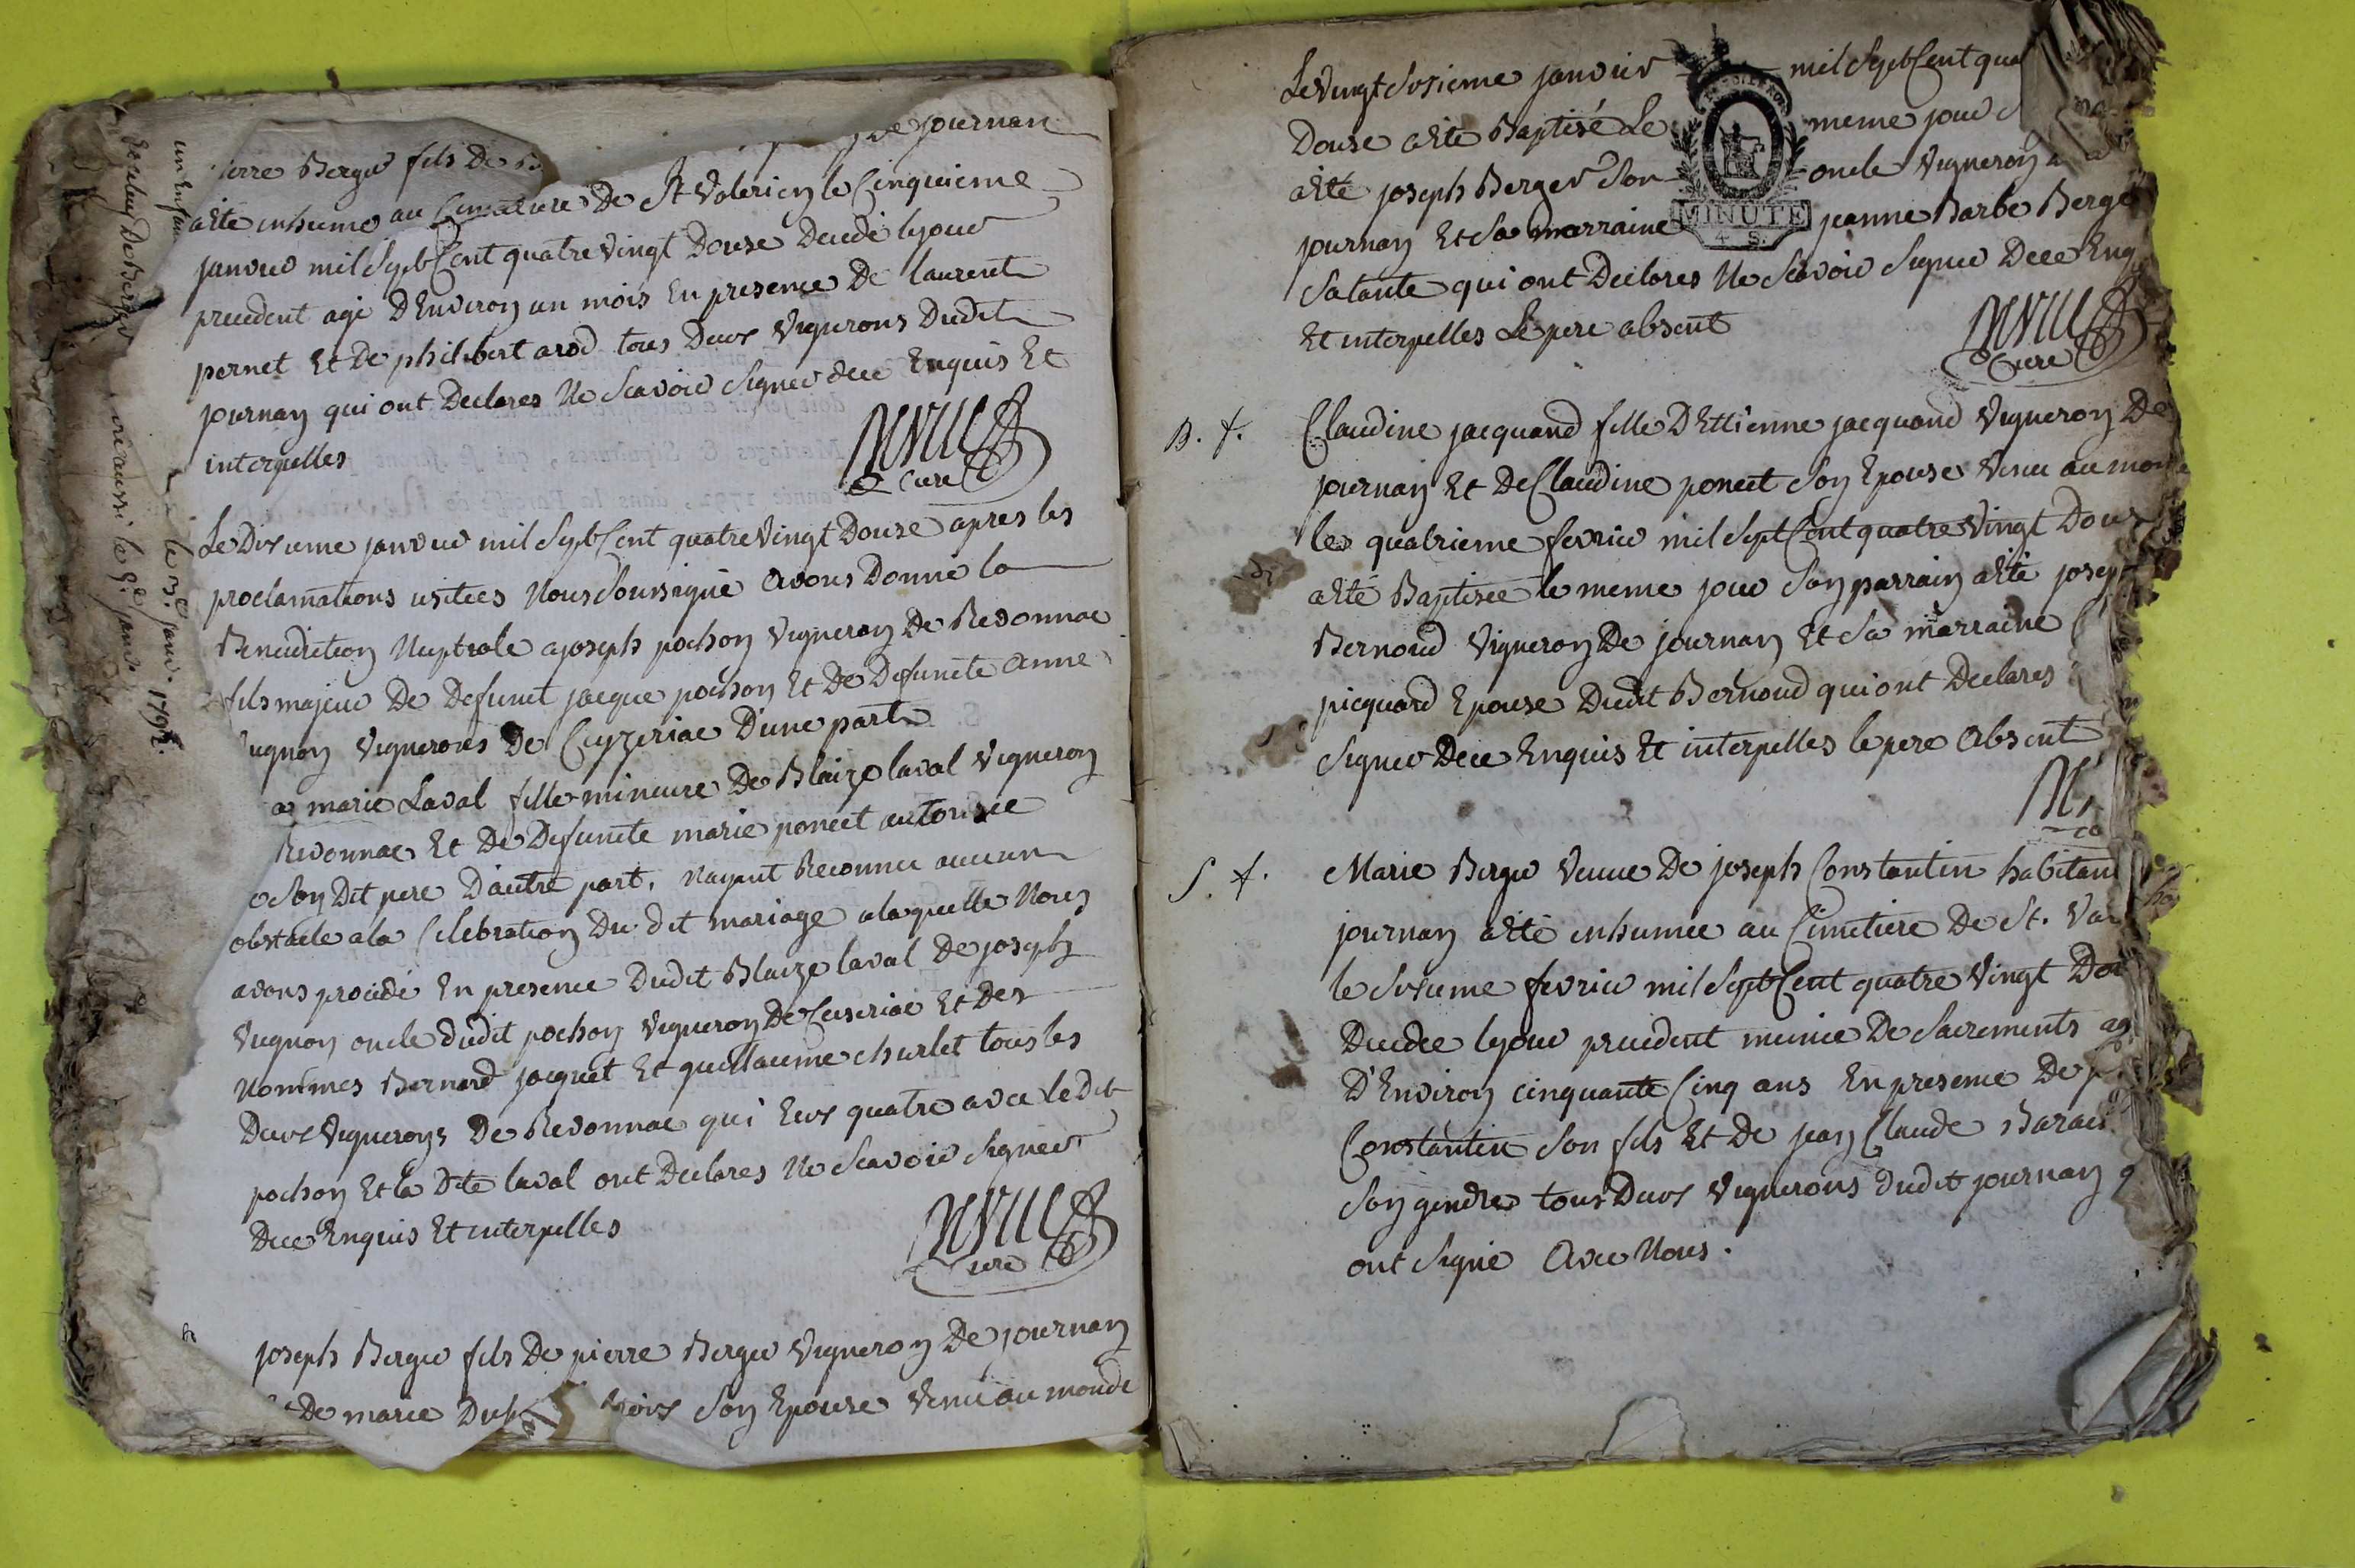 Berger fils De
De journan
aété inhumé au Cimetiere De St Valerien le Cinquieme
janvier mil Sept Cent quatre Vingt Douse Decede lejour
precedent agé D'Environ un mois En presence De laurent
pernet Et De philibert arod tous Deux Vignerons Dudit
journan qui ont Declares Ne Scavoir Signer dece Enquis Et
interpelles
Curé
Le Dixieme janvier mil Sept Cent quatre Vingt Douse apres les
proclamations usitees Nous Soussigné avons Donné la
Benediction Nuptiale ajoseph pochon Vigneron De Revonnas
fils majeur De Defunct jacque pochon Et De Defuncte anne
Vignerons De Ceyzeriac D'une part
marie Laval fille mineure De Blaize laval Vigneron
Revonnas Et De Defuncte marie poncet autorisée
Son Dit pere D'autre part, Nayent Reconnu aucun
obstacle ala Celebration Du dit mariage alaquelle Nous
avons procedé En presence Dudit Blaize laval De joseph
Vugnon oncle dudit pochon Vigneron De Ceseriac Et Des
Nommes Bernard jacquet Et guillaume churlet tous les
Deux Vignerons De Revonnac qui Eux quatre avec le Dit
pochon Et la Dite laval ont Declares Ne Scavoir Signer
Dece Enquis Et interpelles
Curé
joseph Berger fils De pierre Berger Vigneron De journan
De marie Son Epouse Venu au monde
un Enfant
le 3e janv. 1792.
De Berger
aussi le janv.
Le Vingt Sixieme janvier mil Sept Cent
Douse aété Baptisé Le meme jour
aété joseph Berger Son oncle Vigneron
journan Et Sa marraine jeanne Barbe
Sa tante qui ont Declares Ne Scavoir Signer Dece
Et interpelles Le pere absent
MINUTE
4 S.
Curé
B. f.
Claudine jacquand fille D'Ettienne jacquand Vigneron De
journan Et De Claudine poncet Son Epouse Venue au
le quatrieme fevrier mil Sept Cent quatre Vingt
aété Baptisée le meme jour Son parrain aété
Bernoud Vigneron De journan Et Sa marraine
picquard Epouse Dudit Bernoud qui ont Declares
Signer Dece Enquis Et interpelles le pere Absent
S. f.
Marie Berger Veuve De joseph Constantin
journan aété inhumée au Cimetiere De St.
le Sixieme fevrier mil Sept Cent quatre Vingt
Decedee lejour precedent munie De Sacrements
D'Environ cinquante Cinq ans En presence De
Constantin Son fils Et De jean Claude
Son gendre tous Deux Vignerons dudit journan
ont Signé Avec Nous.